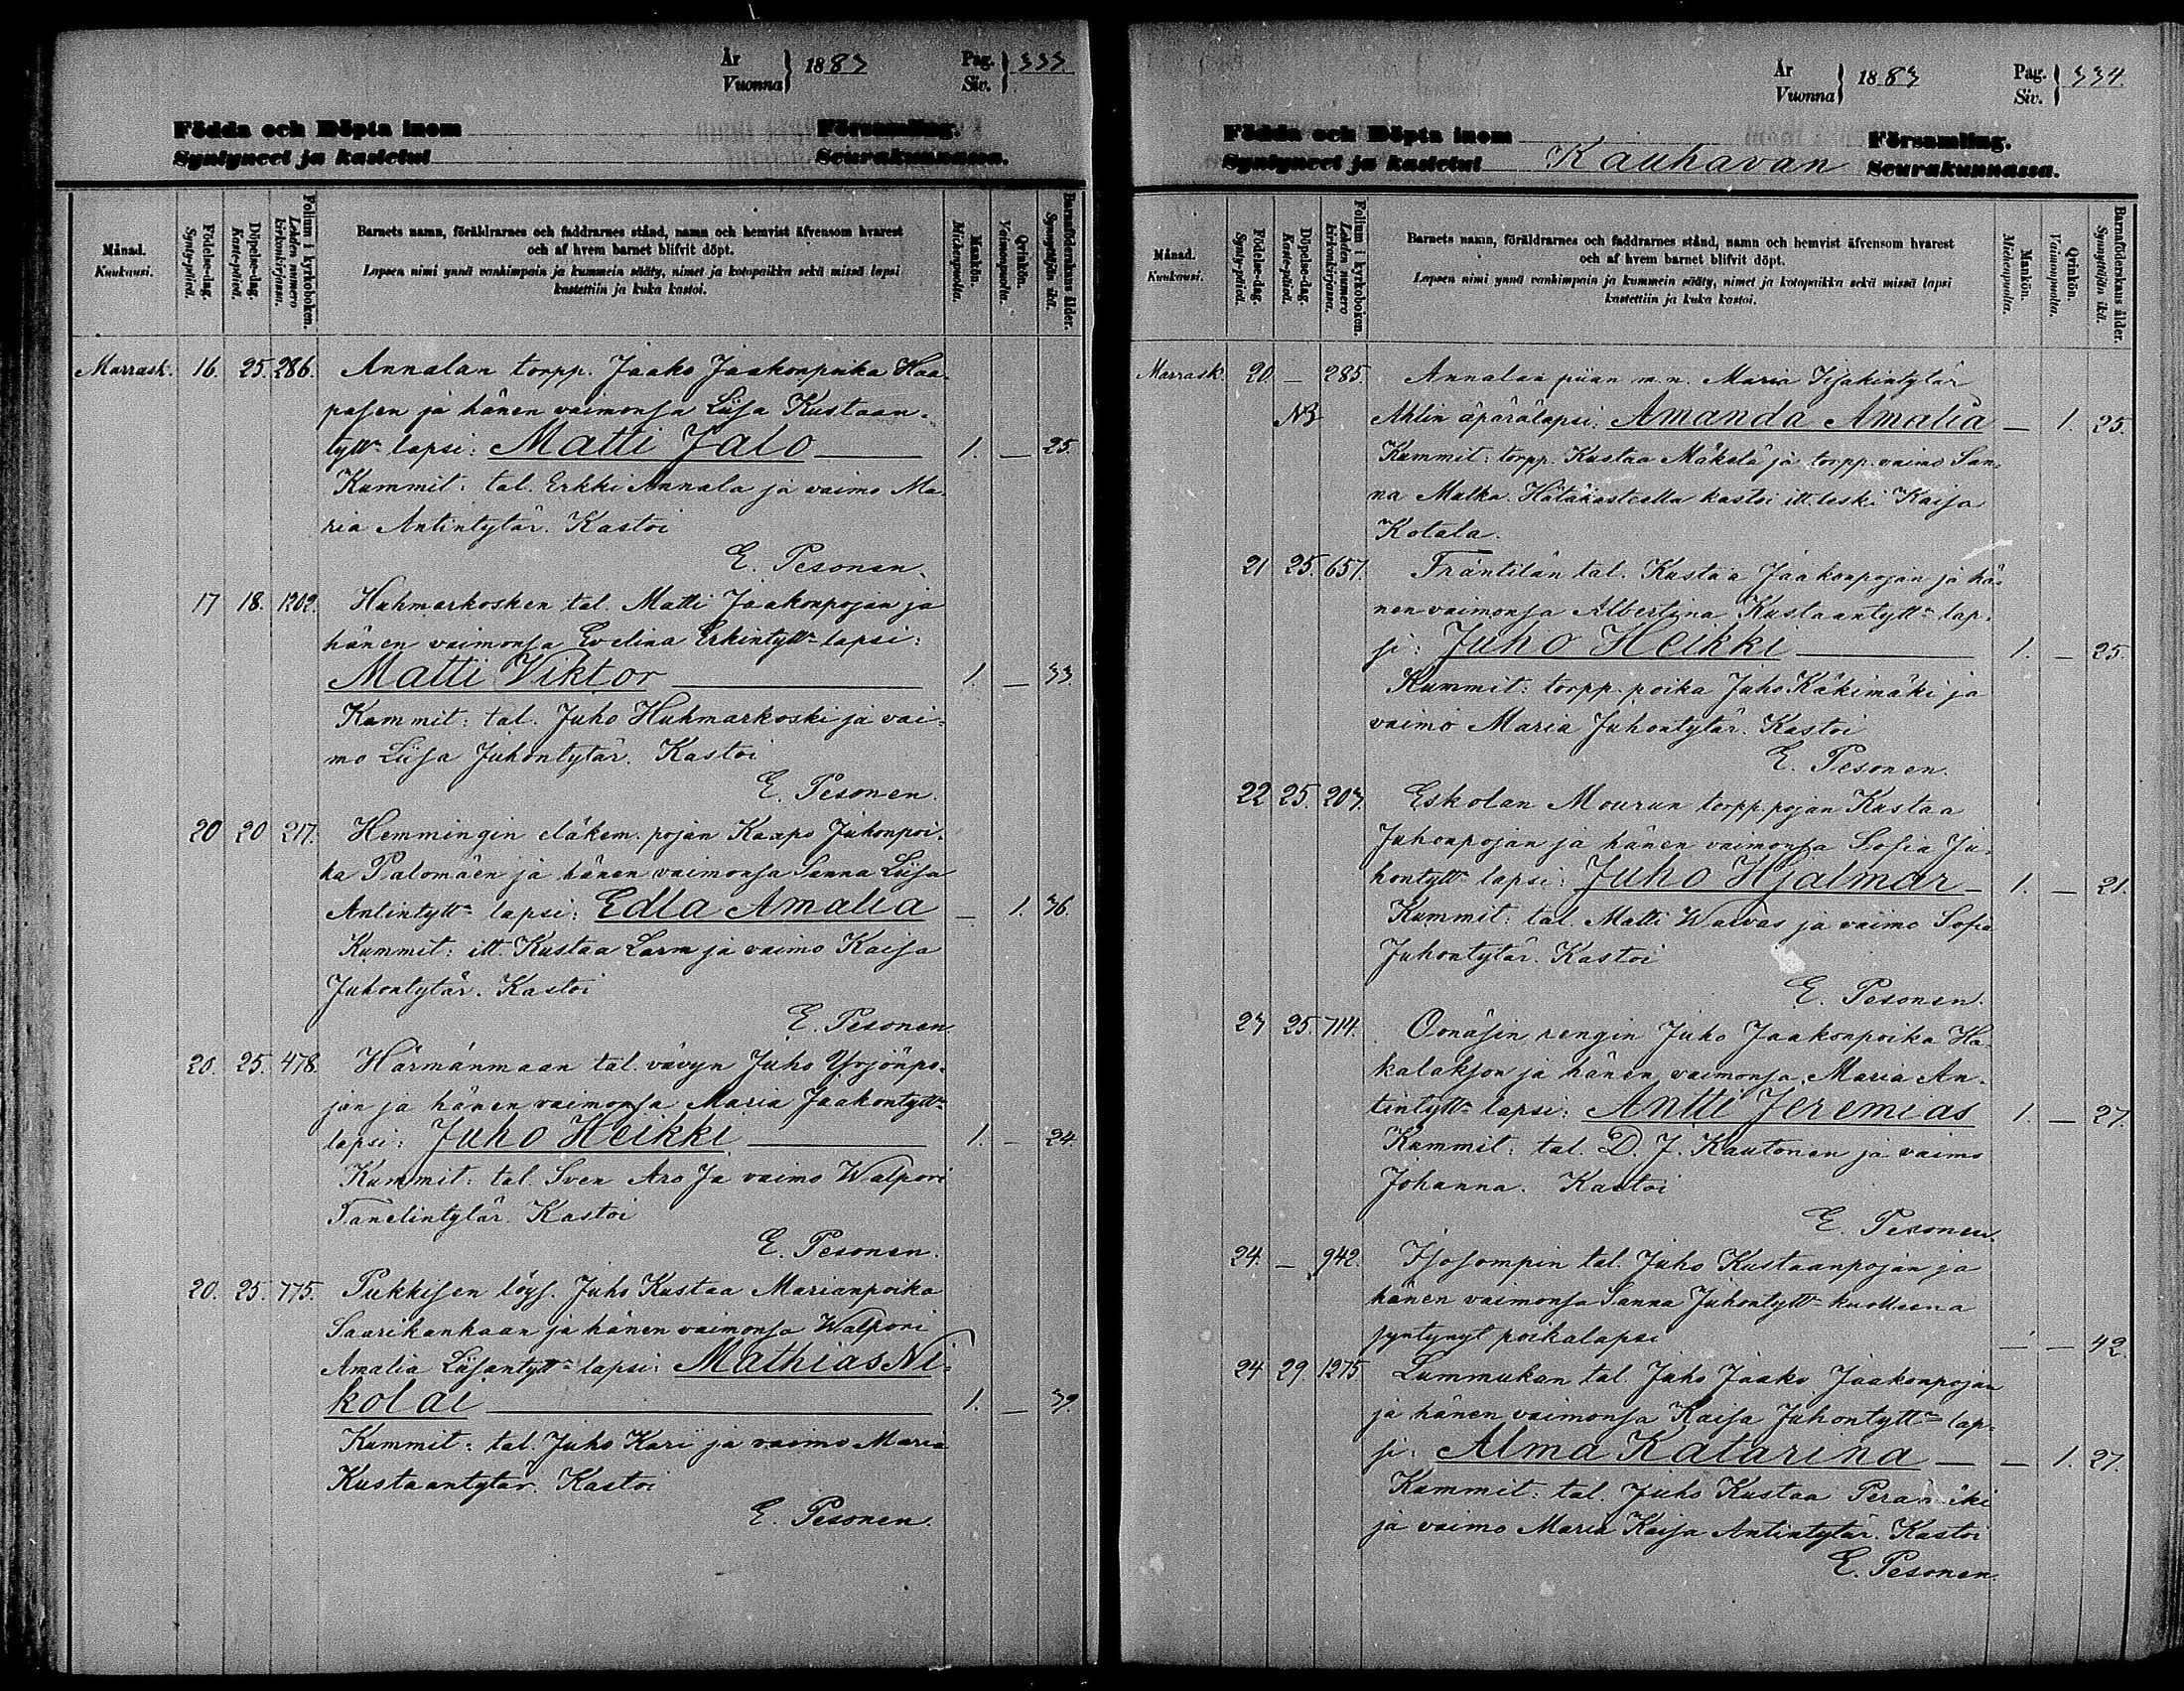 År Vuonna } 1883 Pag. Siv. } 333.
Födda och Döpta inom Församling.
Syntyneet ja kastetut Seurakunnassa.
Månad. Kuukausi.
Födelse-dag. Synty-päivä.
Döpelse-dag. Kaste-päivä.
Folium i kyrkoboken. Lehden numero kirkonkirjassa.
Barnets namn, föräldrarnes och faddrarnes stånd, namn och hemvist äfvensom hvarest
och af hvem barnet blifvit döpt.
Lapsen nimi ynnä vanhimpain ja kummein sääty, nimet ja kotopaikka sekä missä lapsi
kastettiin ja kuka kastoi.
Mankön. Miehenpuolta.
Qvinkön. Vaimonpuolta.
Barnaföderskans ålder. Synnyttäjän ikä.
Marrask. 16. 25. 286. Annalan torpp. Jaako Jaakonpoika Haa-
pasen ja hänen vaimonsa Liisa Kustaan-
tytt. lapsi: Matti Jalo 1. — 25.
Kummit: tal. Erkki Annala ja vaimo Ma-
ria Antintytär. Kastoi
E. Pesonen.
17 18. 1202. Huhmarkosken tal. Matti Jaakonpojan ja
hänen vaimonsa Evelina Erkintytt. lapsi:
Matti Viktor 1. — 33.
Kummit: tal. Juho Huhmarkoski ja vai-
mo Liisa Juhontytär. Kastoi
E. Pesonen.
20 20 217. Hemmingin eläkem. pojan Kaapo Juhonpoi-
ka Palomäen ja hänen vaimonsa Sanna Liisa
Antintytt. lapsi: Edla Amalia — 1. 36.
Kummit: itt. Kustaa Larm ja vaimo Kaisa
Juhontytär. Kastoi
E. Pesonen.
20. 25. 478. Härmänmaan tal. vävyn Juho Yrjönpo-
jan ja hänen vaimonsa Maria Jaakontytt.
lapsi: Juho Heikki 1. — 24.
Kummit: tal. Sven Aro Ja vaimo Walpori
Tanelintytär. Kastoi
E. Pesonen.
20. 25. 775. Pukkisen löys. Juho Kustaa Marianpoika
Saarikankaan ja hänen vaimonsa Walpori
Amalia Liisantytt. lapsi: Mathias Ni-
kolai 1. — 39.
Kummit: tal. Juho Kari ja vaimo Maria
Kustaantytär. Kastoi
E. Pesonen.
År Vuonna } 1883 Pag. Siv. } 334.
Födda och Döpta inom Församling.
Syntyneet ja kastetut Kauhavan Seurakunnassa.
Månad. Kuukausi.
Födelse-dag. Synty-päivä.
Döpelse-dag. Kaste-päivä.
Folium i kyrkoboken. Lehden numero kirkonkirjassa.
Barnets namn, föräldrarnes och faddrarnes stånd, namn och hemvist äfvensom hvarest
och af hvem barnet blifvit döpt.
Lapsen nimi ynnä vanhimpain ja kummein sääty, nimet ja kotopaikka sekä missä lapsi
kastettiin ja kuka kastoi.
Mankön. Miehenpuolta.
Qvinkön. Vaimonpuolta.
Barnaföderskans ålder. Synnyttäjän ikä.
Marrask. 20. — 285. Annalan piian m.n. Maria Iisakintytär
NB Ahlin äpärälapsi: Amanda Amalia — 1. 25.
Kummit: torpp. Kustaa Mäkelä ja torpp. vaimo San-
na Malka. Hätäkasteella kastoi itt. leski Kaisa
Kotala.
21 25. 657. Träntilän tal. Kustaa Jaakonpojan ja hä-
nen vaimonsa Albertina Kustaantytt. lap-
si: Juho Heikki 1. — 25.
Kummit: torpp. poika Juho Käkimäki ja
vaimo Maria Juhontytär. Kastoi
E. Pesonen.
22 25. 203. Eskolan Mourun torpp. pojan Kustaa
Juhonpojan ja hänen vaimonsa Sofia Ju-
hontytt. lapsi: Juho Hjalmar — 1. — 21.
Kummit: tal. Matti Warvas ja vaimo Sofia
Juhontytär. Kastoi
E. Pesonen.
23 25 714. Oonäsin rengin Juho Jaakonpoika Ha-
kalaksen ja hänen vaimonsa Maria An-
tintytt. lapsi: Antti Jeremias 1. — 27.
Kummit: tal. D. J. Kautonen ja vaimo
Johanna. Kastoi
E. Pesonen.
24. — 942. Isosompin tal. Juho Kustaanpojan ja
hänen vaimonsa Sanna Juhontytt. kuolleena
syntynyt poikalapsi — — 42.
24 29. 1275 Lummukan tal. Juho Jaako Jaakonpojan
ja hänen vaimonsa Kaisa Juhontytt. lap-
si: Alma Katarina — — 1. 27.
Kummit: tal. Juho Kustaa Peramäki
ja vaimo Maria Kaisa Antintytär. Kastoi
E. Pesonen.